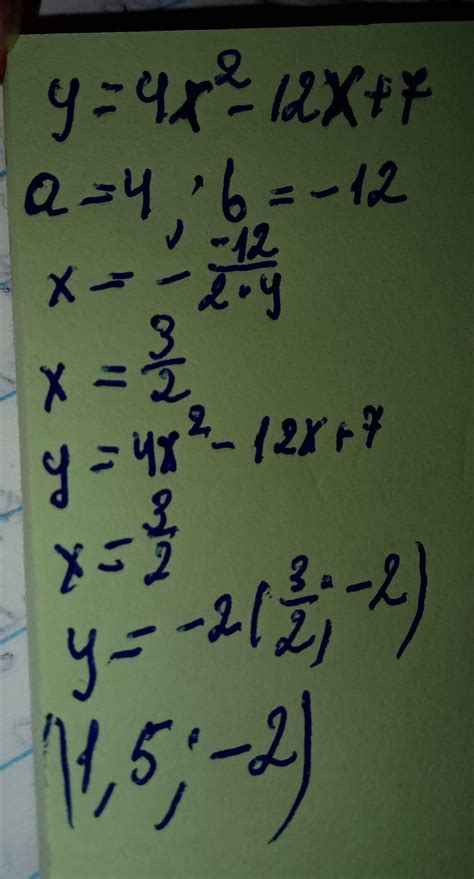 y = 4x² - 12x + 7
a = 4 ; b = -12
x = - -12/2·4
x = 3/2
y = 4x² - 12x + 7
x = 3/2
y = -2 (3/2; -2)
(1,5; -2)